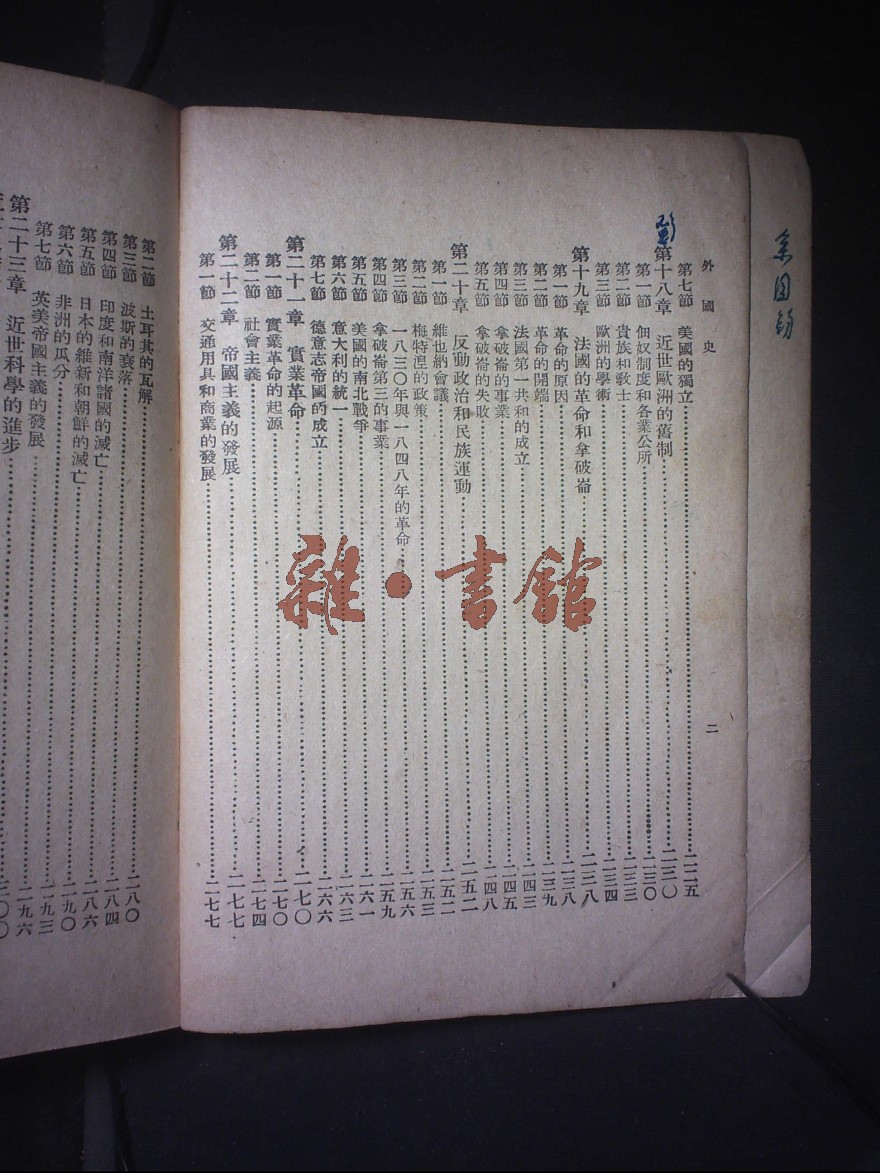 外國史
二
第七節 美國的獨立……二二五
第十八章 近世歐洲的舊制……二三〇
第一節 佃奴制度和各業公所……二三〇
第二節 貴族和敎士……二三三
第三節 歐洲的學術……二三四
第十九章 法國的革命和拿破崙……二三八
第一節 革命的原因……二三八
第二節 革命的開端……二三九
第三節 法國第一共和的成立……二四三
第四節 拿破崙的事業……二四五
第五節 拿破崙的失敗……二四八
第二十章 反動政治和民族運動……二五二
第一節 維也納會議……二五二
第二節 梅特湼的政策……二五三
第三節 一八三〇年與一八四八年的革命……二五六
第四節 拿破崙第三的事業……二五九
第五節 美國的南北戰爭……二六一
第六節 意大利的統一……二六三
第七節 德意志帝國的成立……二六六
第二十一章 實業革命……二七〇
第一節 實業革命的起源……二七〇
第二節 社會主義……二七四
第二十二章 帝國主義的發展……二七七
第一節 交通用具和商業的發展……二七七
第二節 土耳其的瓦解……二八〇
第三節 波斯的衰落
第四節 印度和南洋諸國的滅亡……二八四
第五節 日本的維新和朝鮮的滅亡……二八六
第六節 非洲的瓜分……二九〇
第七節 英美帝國主義的發展……二九三
第二十三章 近世科學的進步……二九六
雜·書館